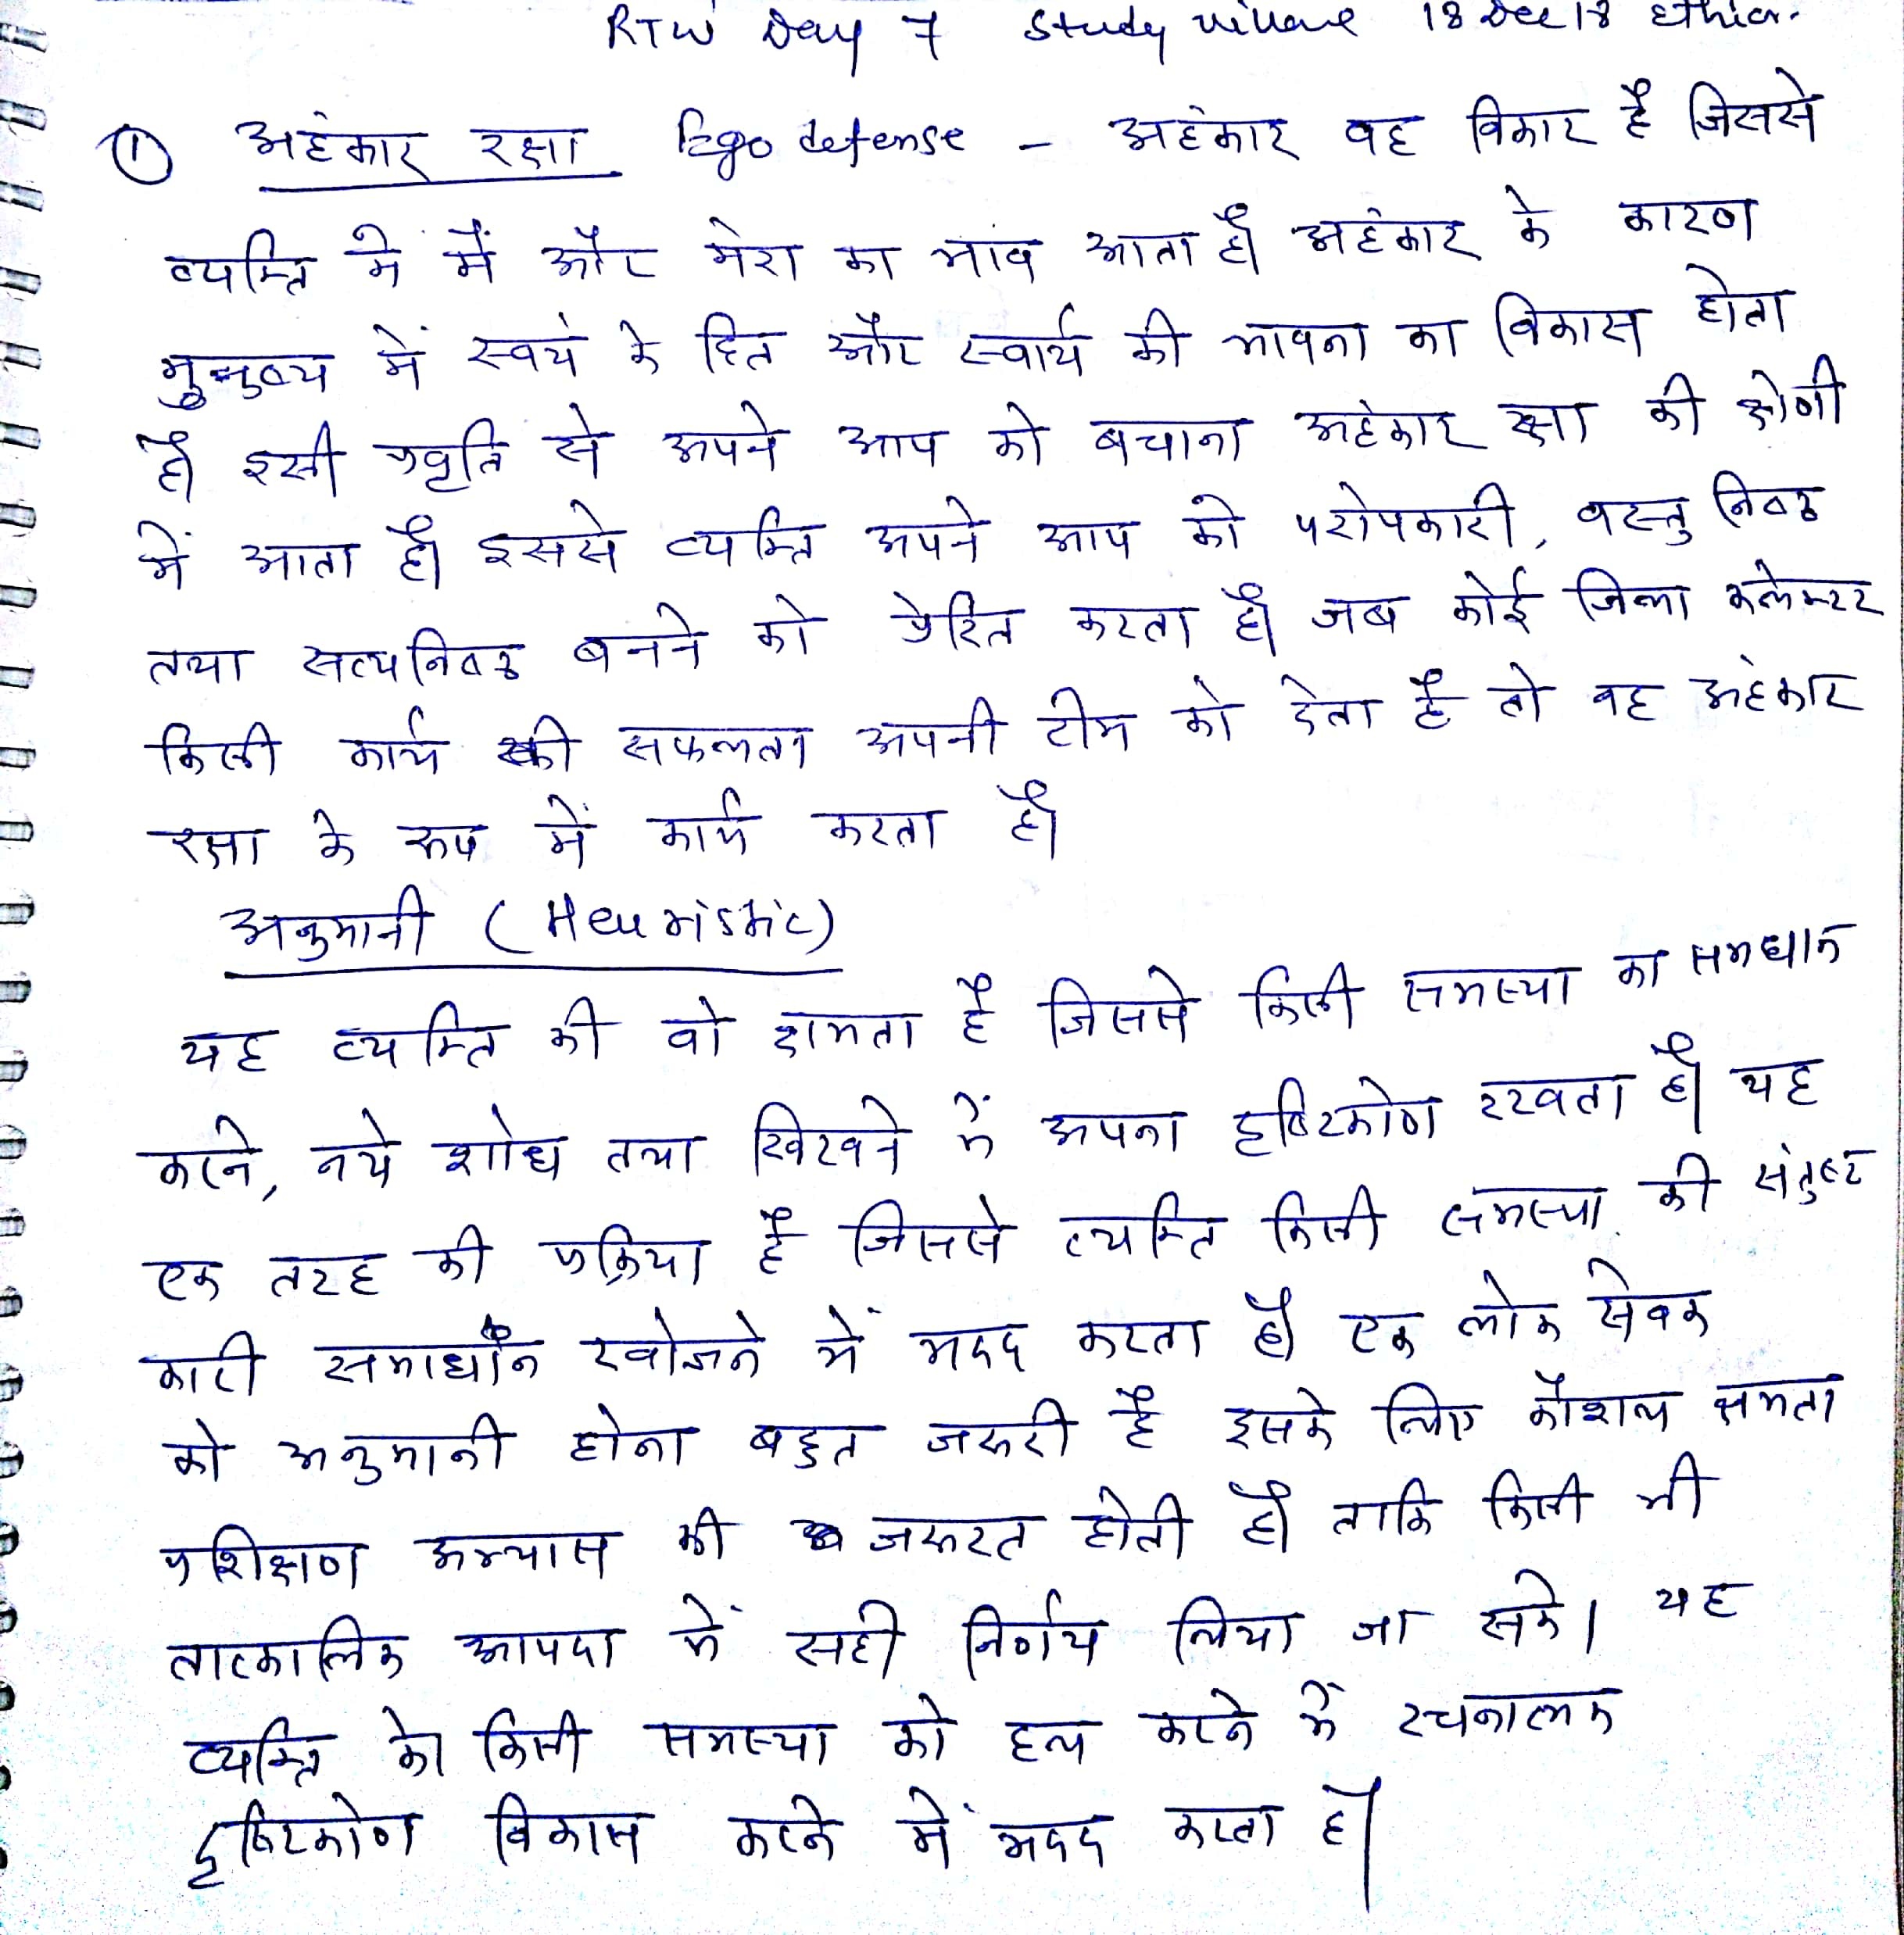 RTW Day 7 Study 18 Dec 18 Ethics.
① अहंकार रक्षा Ego defense - अहंकार वह विकार है जिससे
व्यक्ति मे मैं और मेरा का भाव आता है। अहंकार के कारण
मुनुष्य में स्वयं के हित और स्वार्थ की भावना का विकास होता
है। इसी प्रवृति से अपने आप को बचाना अहंकार रक्षा की श्रेणी
में आता है। इससे व्यक्ति अपने आप को परोपकारी, वस्तुनिष्ठ
तथा सत्यनिष्ठ बनने को प्रेरित करता है। जब कोई जिला कलेक्टर
किसी कार्य की सफलता अपनी टीम को देता है तो वह अहंकार
रक्षा के रूप में कार्य करता है।
अनुमानी (Heuristic)
यह व्यक्ति की वो क्षमता है जिससे किसी समस्या का समधान
करने, नये शोध तथा सिखने में अपना दृष्टिकोण रखता है। यह
एक तरह की प्रक्रिया है जिससे व्यक्ति किसी समस्या की संतुष्ट
कारी समाधान खोजने में मदद करता है। एक लोक सेवक
को अनुमानी होना बहुत जरूरी है इसके लिए कौशल क्षमता
प्रशिक्षण अभ्यास की जरूरत होती है। ताकि किसी भी
तात्कालिक आपदा में सही निर्णय लिया जा सके। यह
व्यक्ति को किसी समस्या को हल करने में रचनात्मक
दृष्टिकोण विकास करने में मदद करता है।